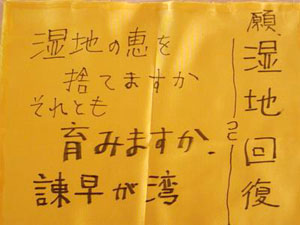 願湿地回復
湿地の恵を
捨てますか
それとも
育みますか
諫早が湾